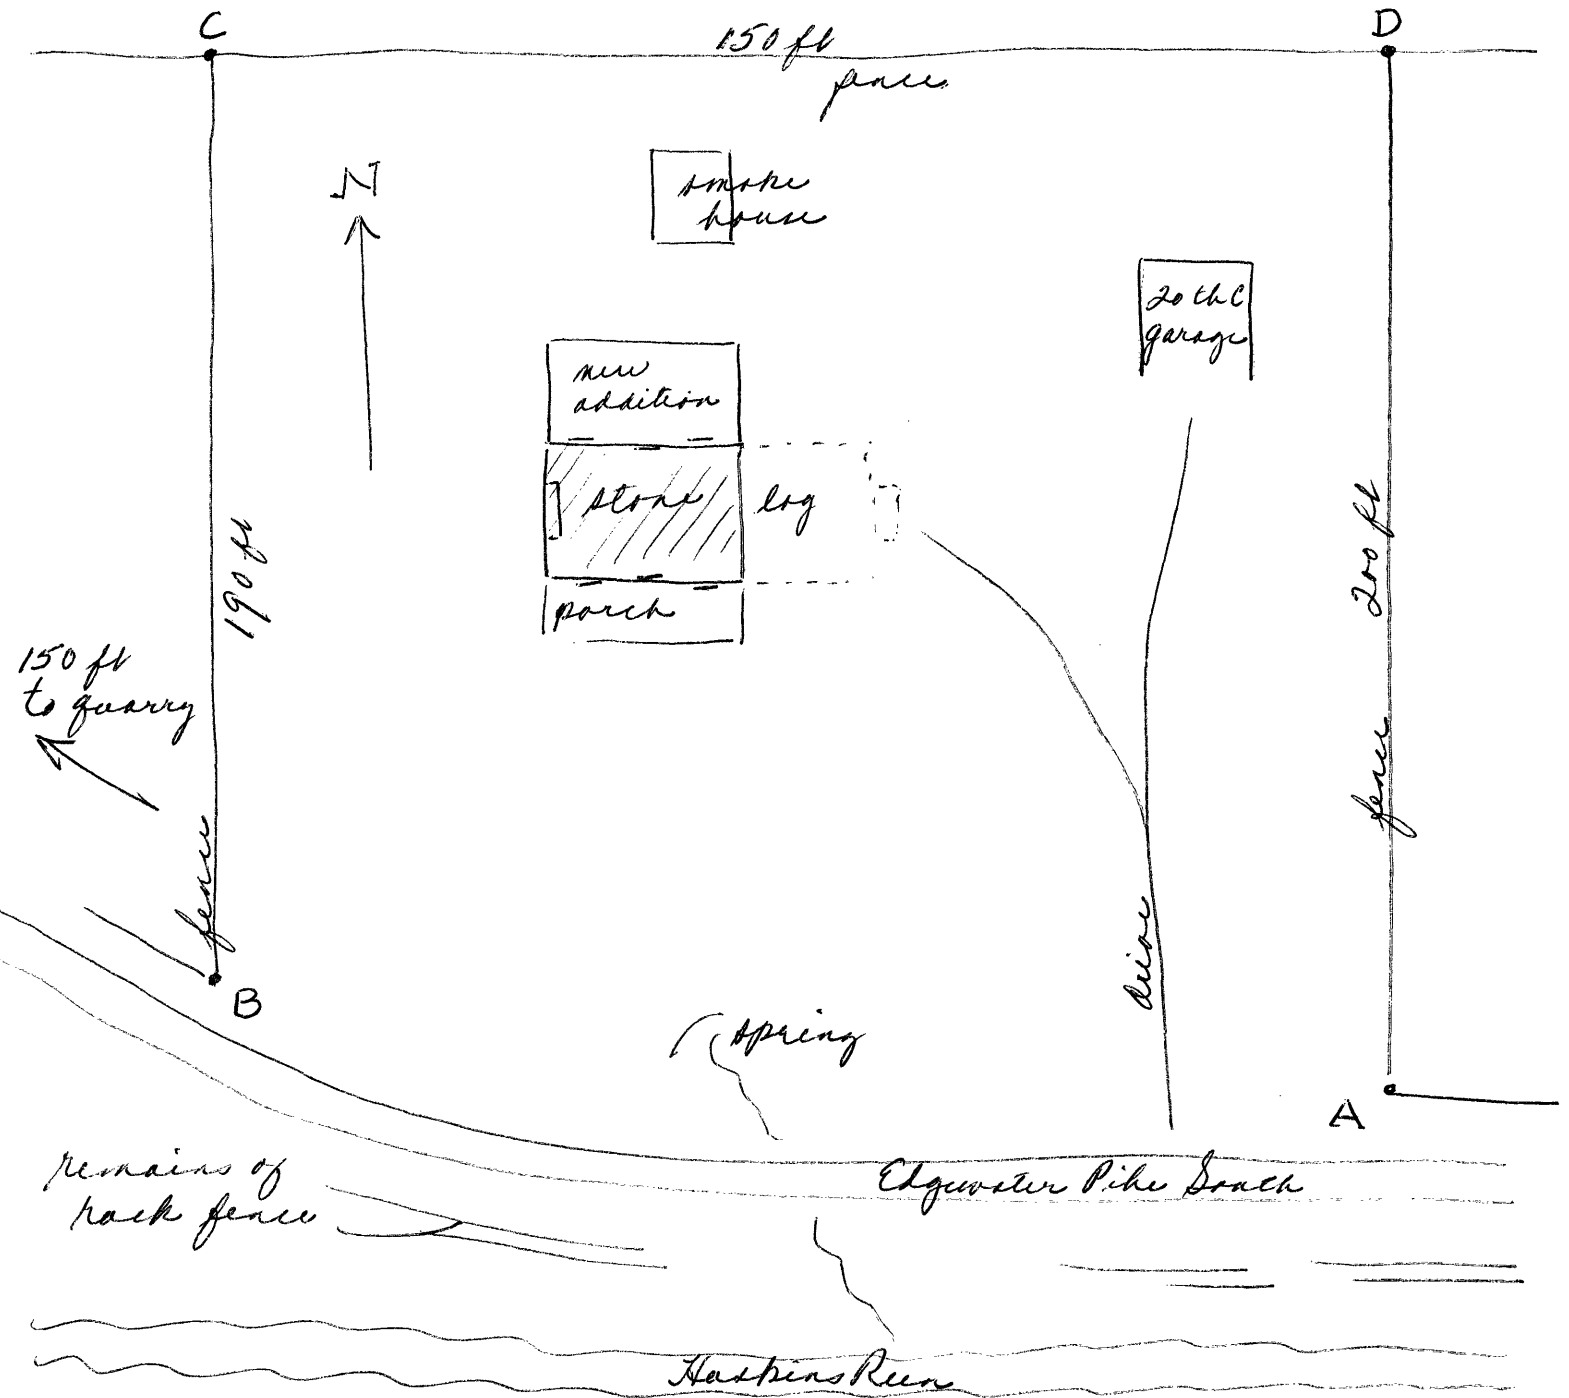 C
150 ft
D
fence
N
smoke
house
20th C
garage
new
addition
stone
log
porch
190 ft
200 ft
fence
150 ft
to quarry
fence
B
drive
spring
A
remains of
rock fence
Edgewater Pike South
Haskins Run